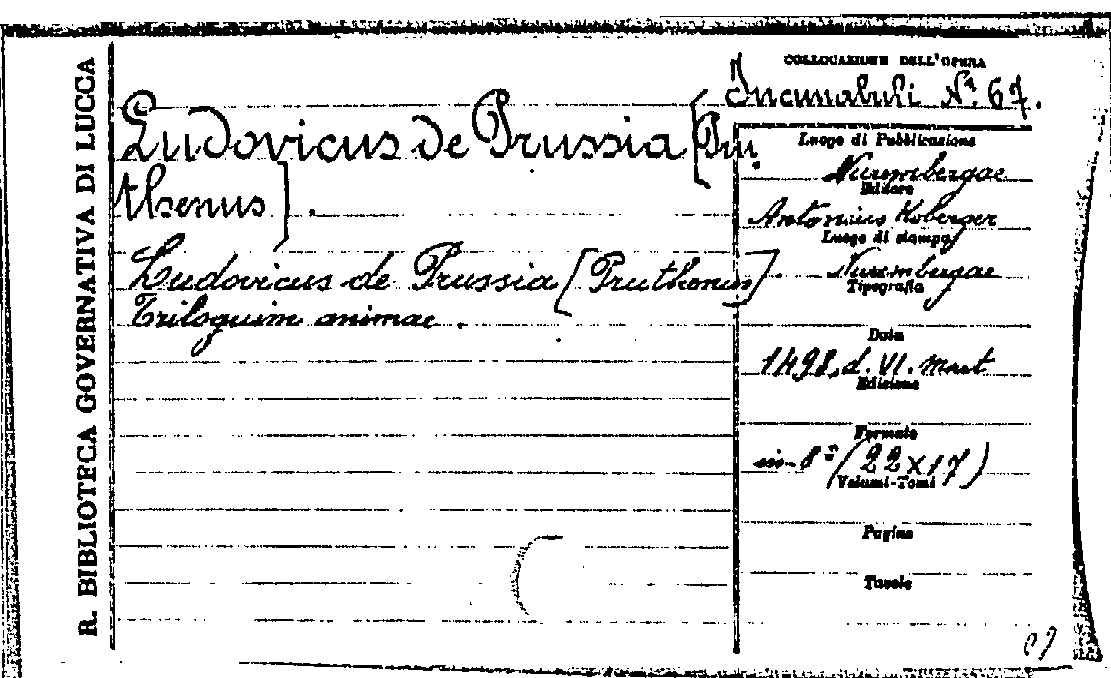 R. BIBLIOTECA GOVERNATIVA DI LUCCA
COLLOCAZIONE DELL'OPERA
Incunabuli Nº. 67.
Ludovicus de Prussia [Pru
thenus].
Ludovicus de Prussia [Pruthenus].
Triloquium animae.
Luogo di Pubblicazione
Nurembergae
Editore
Antonius Koberger
Luogo di stampa
Nurembergae
Tipografia
Data
1498, d. VI. mart
Edizione
Formato
in-8º (22x17)
Volumi-Tomi
Pagine
Tavole